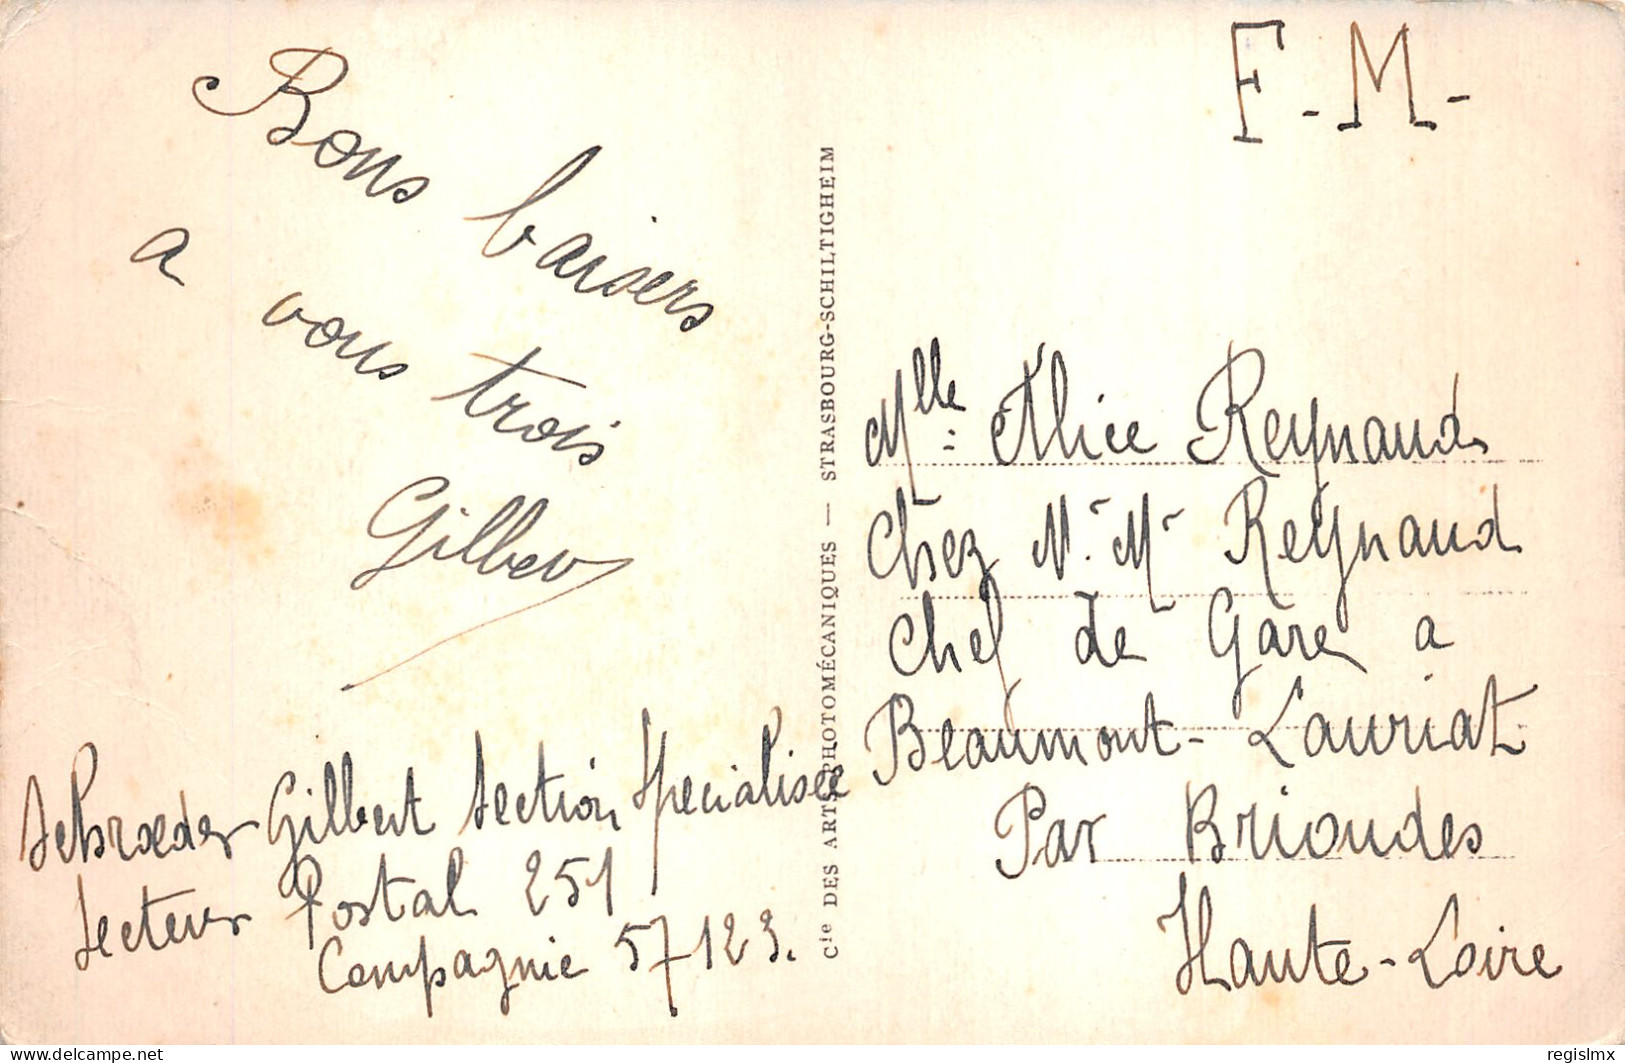 F-M-
Bons baisers
a vous trois
Gilber
Schrœder Gilbert Section Specialisée
Secteur Postal 251
Compagnie 57123.
Cie DES ARTS PHOTOMÉCANIQUES — STRASBOURG-SCHILTIGHEIM
Mlle Alice Reynaud
Chez Mr. Mr Reynaud
Chef de Gare a
Beaumont-Lauriat
Par Brioudes
Haute-Loire
delcampe.net
regislmx